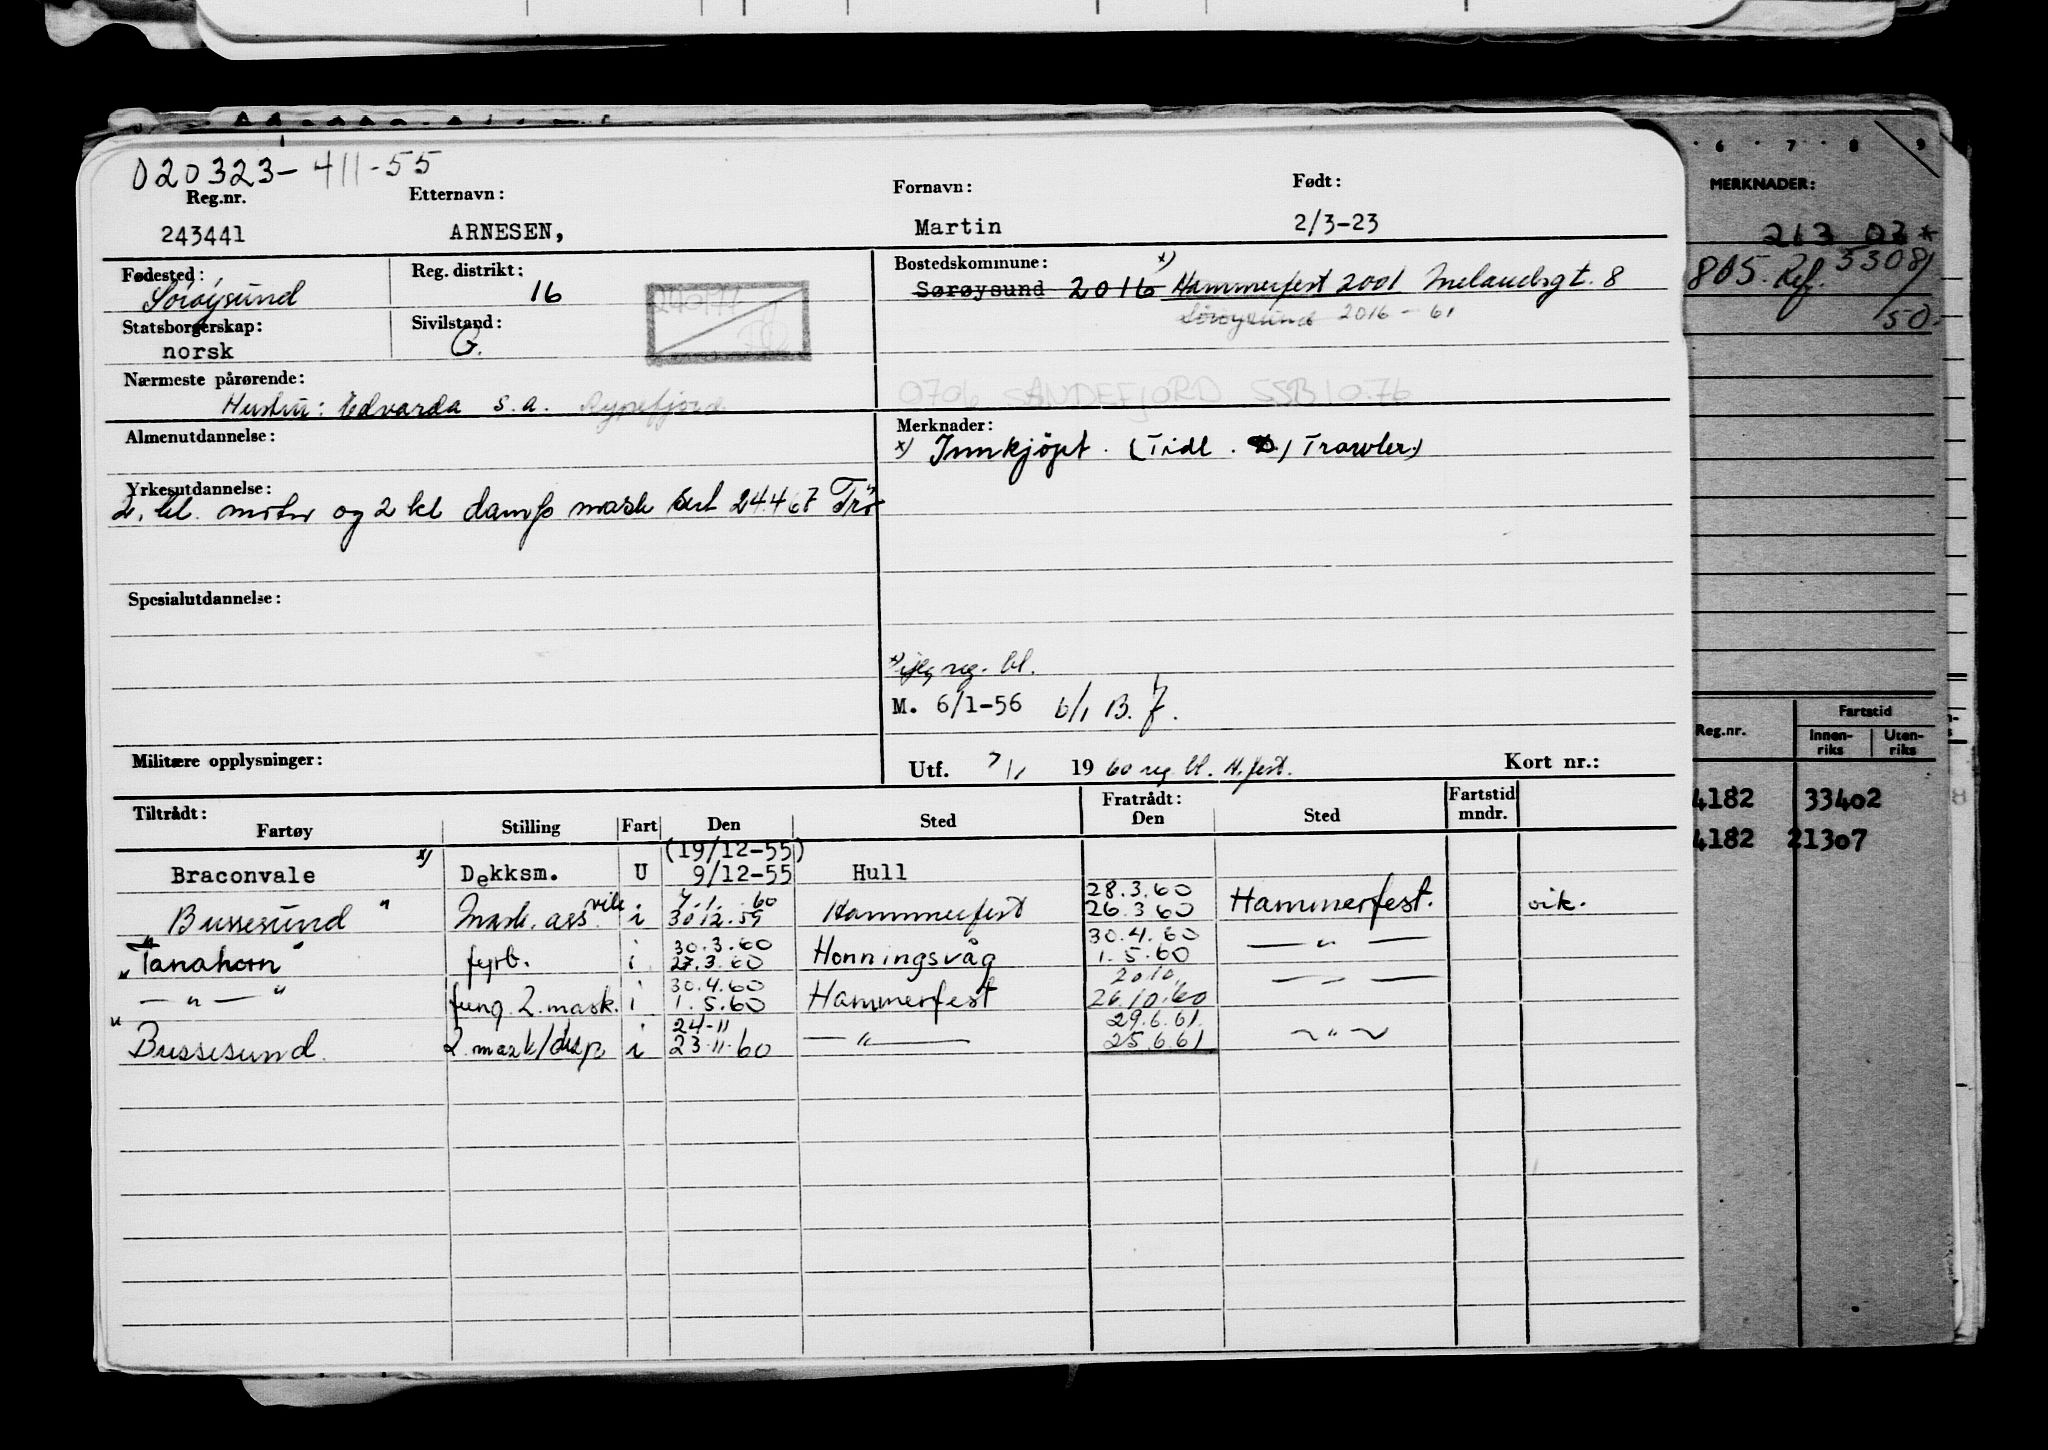 020323-411-55
Reg.nr. Etternavn: Fornavn: Født:
243441 ARNESEN, Martin 2/3-23
Fødested: Reg. distrikt: Bostedskommune: x)
Sörøysund 16 Sørøysund 2016 Hammerfest 2001 Melandsgt. 8
Sörøysund 2016 - 61
Statsborgerskap: Sivilstand:
norsk G.
Nærmeste pårørende:
Hustru: Edvarda s.a. Rypefjord
0706 SANDEFJORD SSB 10.76
Almenutdannelse: Merknader:
x) Innkjöpt. (Tidl. Trawler)
Yrkesutdannelse:
2. kl. motor og 2 kl damp mask sert 24.4.67 Trö
Spesialutdannelse:
reg. bl.
M. 6/1-56 6/1 B. f.
Militære opplysninger: Utf. 7/1 1960 reg. bl. H.fest. Kort nr.:
Tiltrådt: Fratrådt: Fartstid
Fartøy Stilling Fart Den Sted Den Sted mndr.
(19/12-55)
Braconvale x) Dekksm. U 9/12-55 Hull
7.1.60 28.3.60
" Bussesund " Mask. ass. vik i 30.12.59 Hammerfest 26.3 60 Hammerfest. vik.
30.3.60 30.4.60
" Tanahorn " fyrb. i 27.3.60 Honningsvåg 1.5.60 — " —
30.4.60 20.10.
— " — " fung. 2. mask. i 1.5.60 Hammerfest 26.10.60 — " —
24-11 29.6.61.
" Bussesund 2. mask/disp i 23.11.60 — " — 25.6.61 ~ " ~
6 7 8 9
MERKNADER:
213 03 *
865. Ref. 53081
50.
Reg.nr. Fartstid
Innen-riks Uten-riks
4182 33402
4182 21307